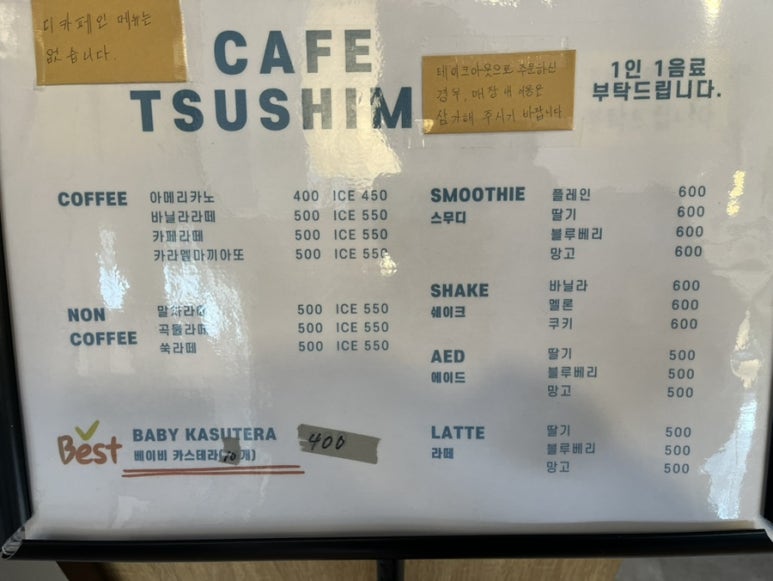 디카페인 메뉴는
없습니다.
CAFE
TSUSHIM
테이크아웃으로 주문하신
경우, 매장 내 이용은
삼가해 주시기 바랍니다
1인 1음료
부탁드립니다.
COFFEE
아메리카노 400 ICE 450
바닐라라떼 500 ICE 550
카페라떼 500 ICE 550
카라멜마끼아또 500 ICE 550
NON
COFFEE
말차라떼 500 ICE 550
곡물라떼 500 ICE 550
쑥라떼 500 ICE 550
Best
BABY KASUTERA 400
베이비 카스테라(10개)
SMOOTHIE
스무디
플레인 600
딸기 600
블루베리 600
망고 600
SHAKE
쉐이크
바닐라 600
멜론 600
쿠키 600
AED
에이드
딸기 500
블루베리 500
망고 500
LATTE
라떼
딸기 500
블루베리 500
망고 500